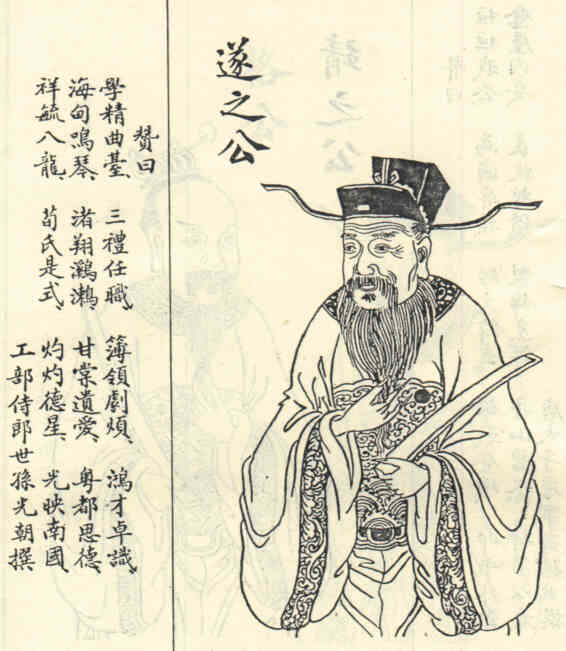 遂之公
贊曰
學精曲臺、三禮任職、簿領劇煩、鴻才卓識、
海甸鳴琴、渚翔鸂鷘、甘棠遺愛、粵都思德、
祥毓八龍、荀氏是式、灼灼德星、光映南國、
工部侍郎世孫光朝撰